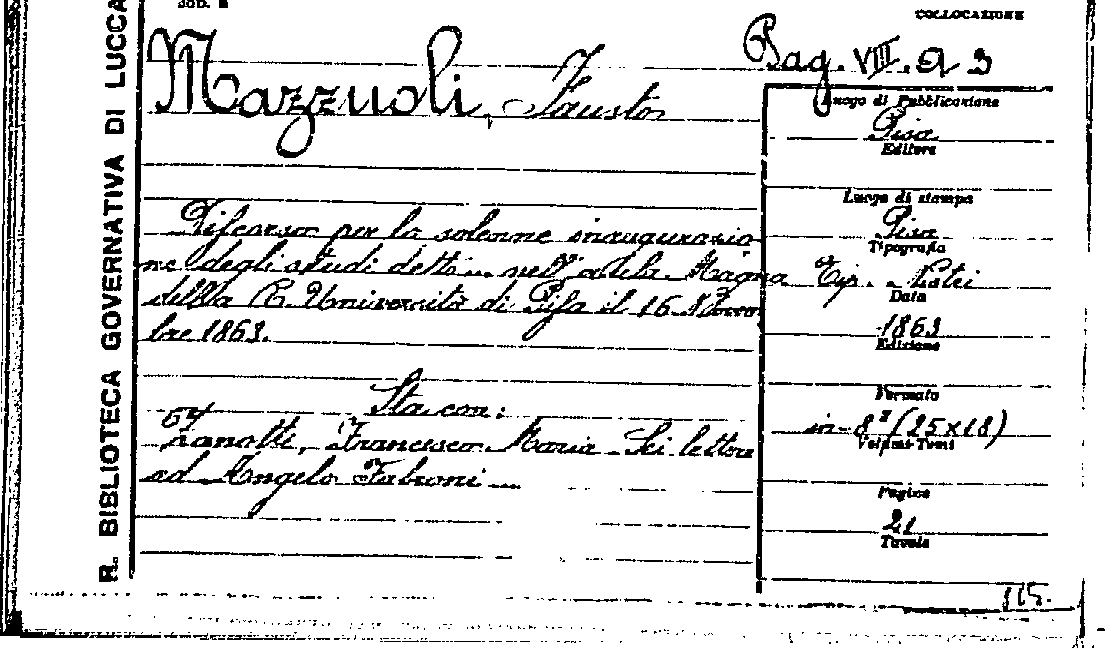 Mod. 2
COLLOCAZIONE
Mazzuoli, Fausto
Bag. VIII. A 3
Luogo di Pubblicazione
Pisa
Editore
Luogo di stampa
Pisa
Tipografia
Tip. Nistri
Data
1863
Edizione
Formato
in-8° (25x18)
Volumi-Tomi
Pagine
21
Tavole
Discorso per la solenne inaugurazio
ne degli studi detto... nell'aula Magna
della R. Università di Pisa il 16 Novem
bre 1863.
Sta con:
64
Zanotti, Francesco Maria - Sei lettere
ad Angelo Fabroni ...
115.
R. BIBLIOTECA GOVERNATIVA DI LUCCA